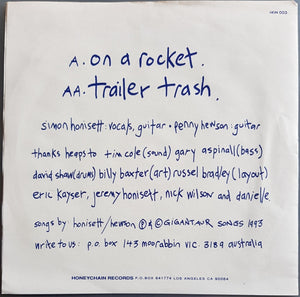 HON 003
A. on a rocket.
AA. trailer trash.
simon honisett: vocals, guitar • penny hewson: guitar
thanks heaps to tim cole (sound) gary aspinall (bass)
david shaw (drums) billy baxter (art) russel bradley (layout)
eric kayser, jeremy honisett, nick wilson and danielle.
songs by honisett/hewson ℗ & © GIGANTAUR SONGS 1993
write to us: p.o. box 143 moorabbin vic. 3189 australia
HONEYCHAIN RECORDS P.O. BOX 641774 LOS ANGELES CA 90064